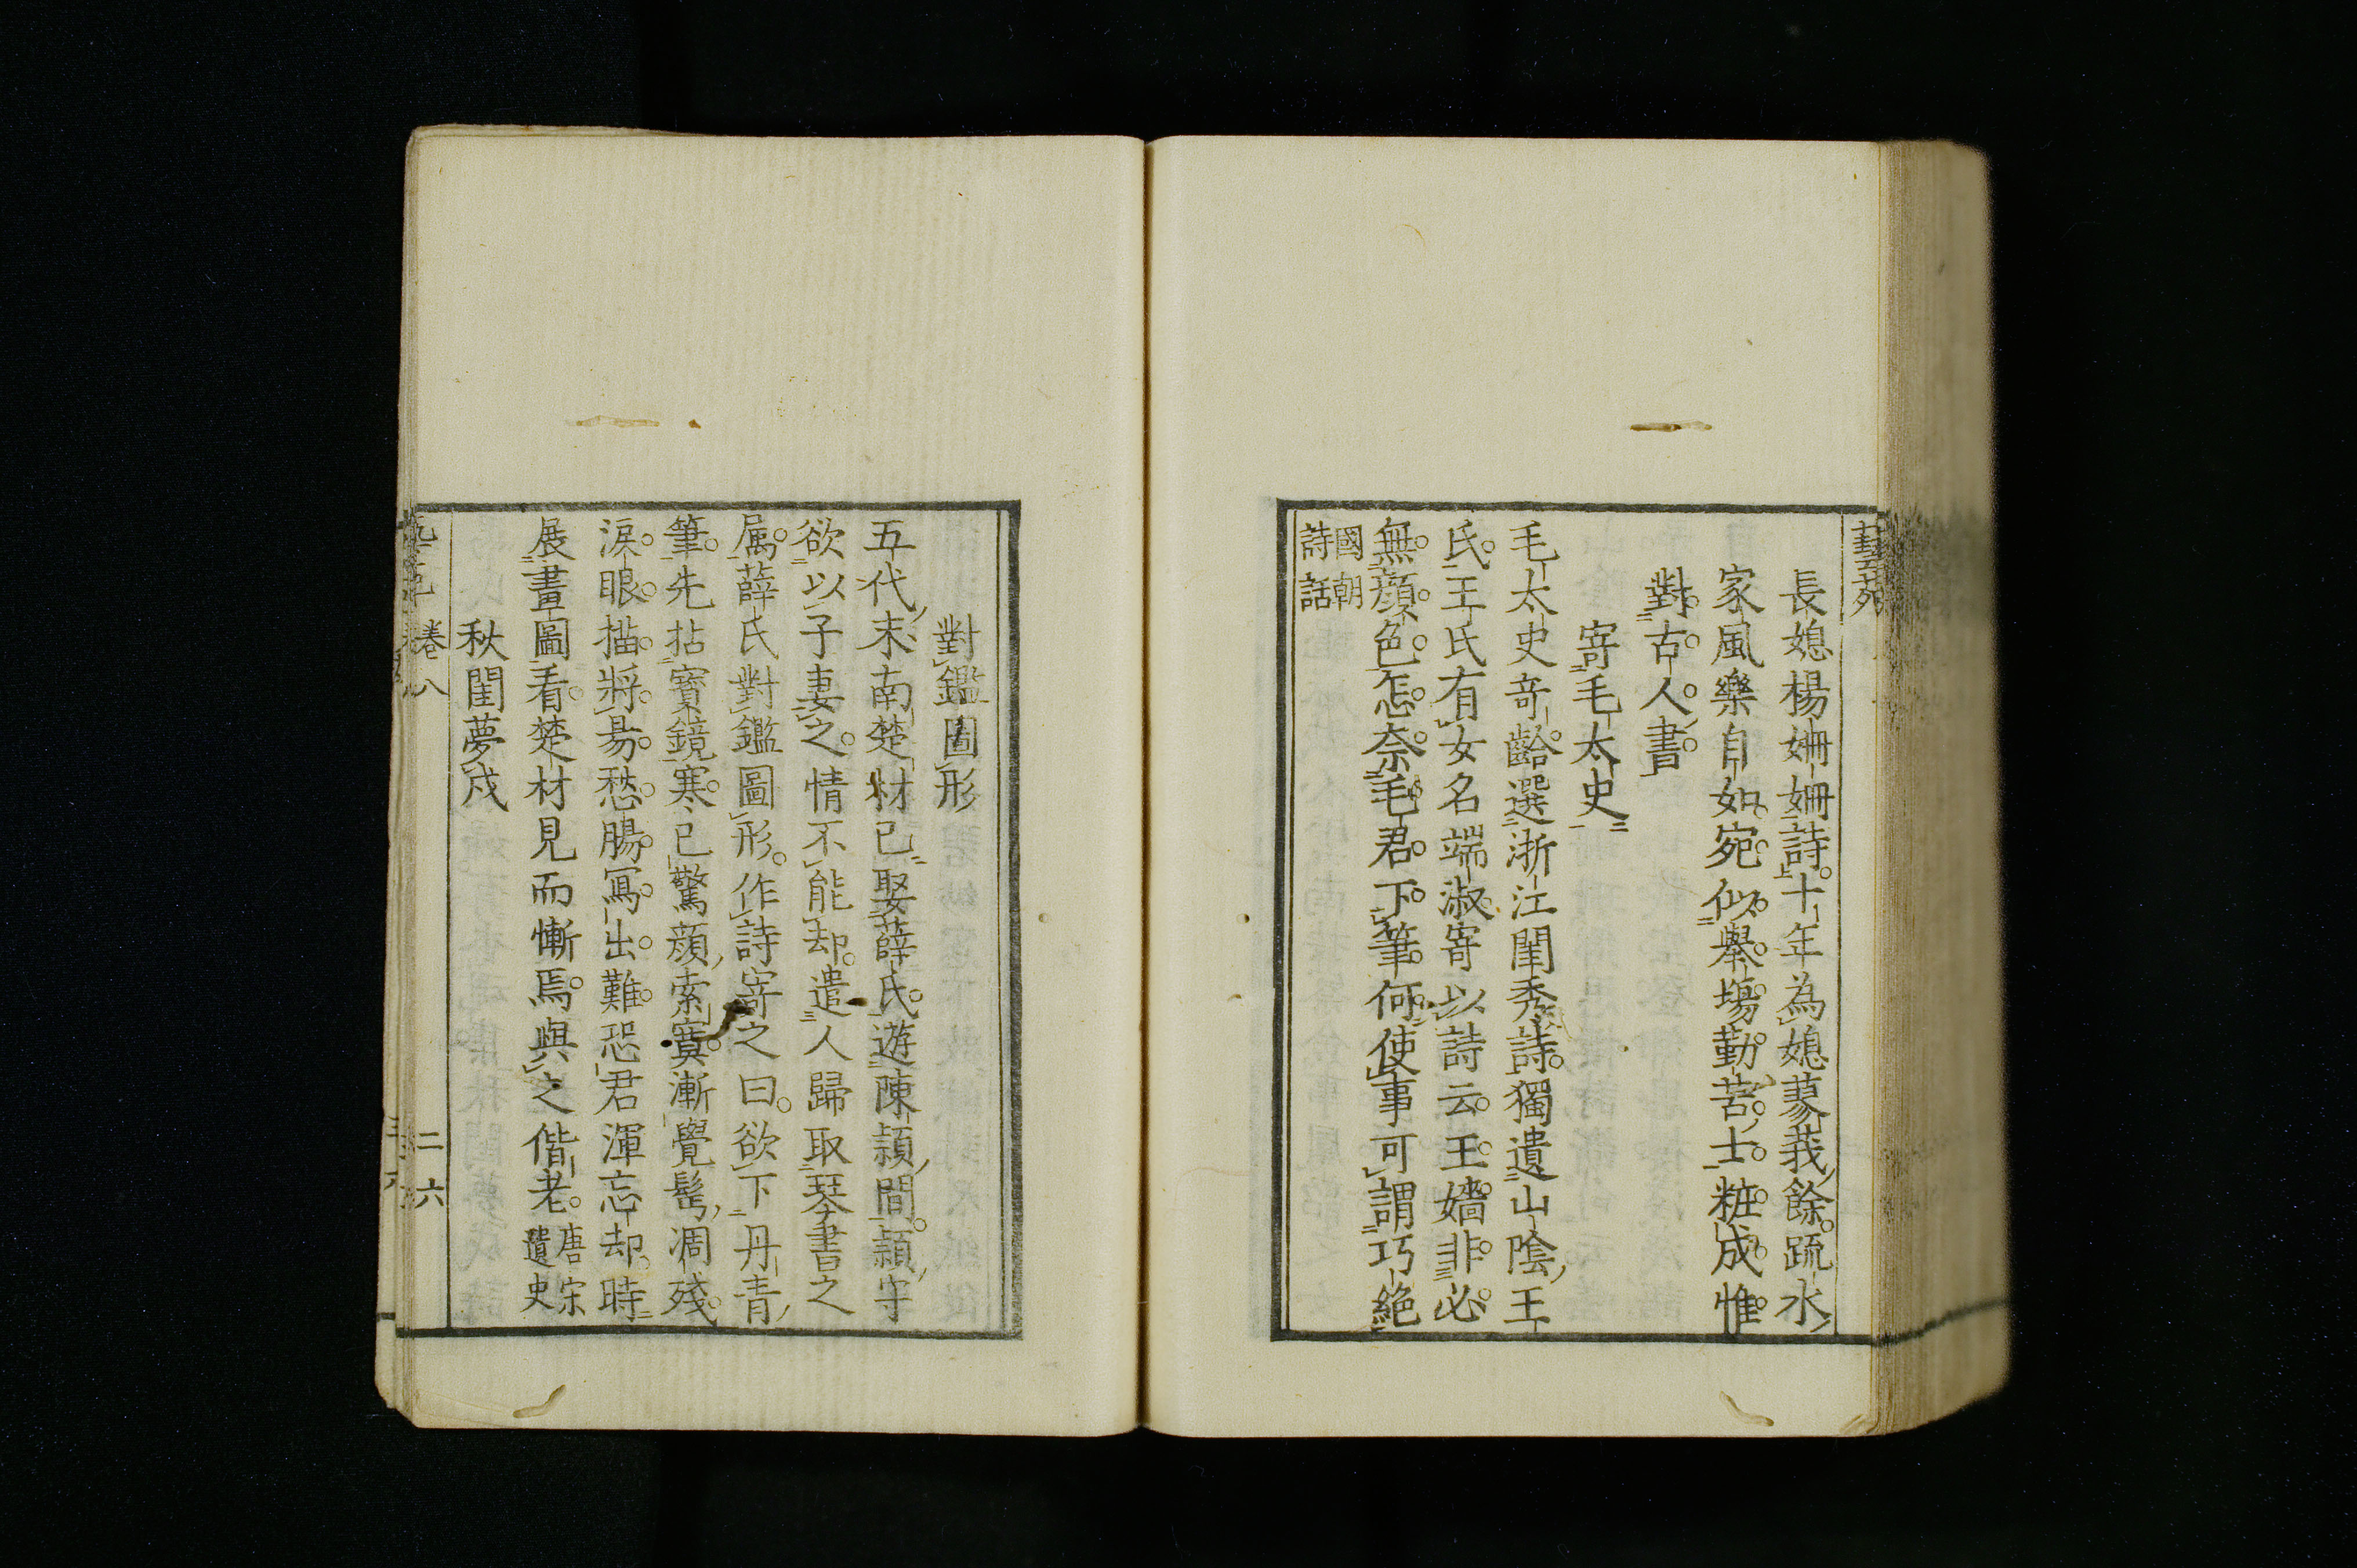 藝苑
長媳楊姍姍詩十年為媳蓼莪餘䟽水
家風樂自如宛似舉塲勤苦士粧成惟
對古人書
寄毛太史
毛太史竒齡選浙江閨秀詩獨遺山陰王
氏王氏有女名端淑寄以詩云王嬙非必
無顔色怎奈毛君下筆何使事可謂巧絕
國朝
詩話
對鑑圖形
五代末南楚材已娶薛氏遊陳頴間頴守
欲以子妻之情不能却遣人歸取琴書之
属薛氏對鑑圖形作詩寄之曰欲下丹青
筆先拈寳鏡寒已驚顔索寞漸覺鬂凋殘
淚眼描將易愁腸寫出難恐君渾忘却時
展畫圖看楚材見而慚焉與之偕老
唐宋
遺史
秋閨夢戍
卷八
二六